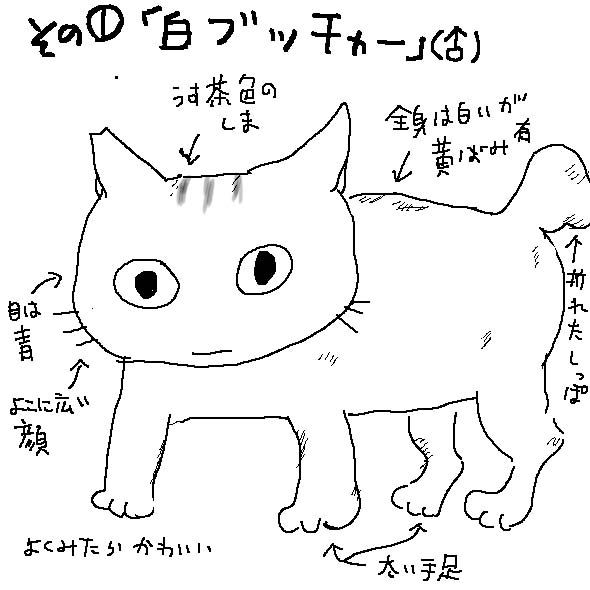 その①「白ブッチャー」(♂)
うす茶色の
しま
全身は白いが
黄ばみ有
目は
青
よこに広い
顔
折れたしっぽ
よくみたらかわいい
太い手足